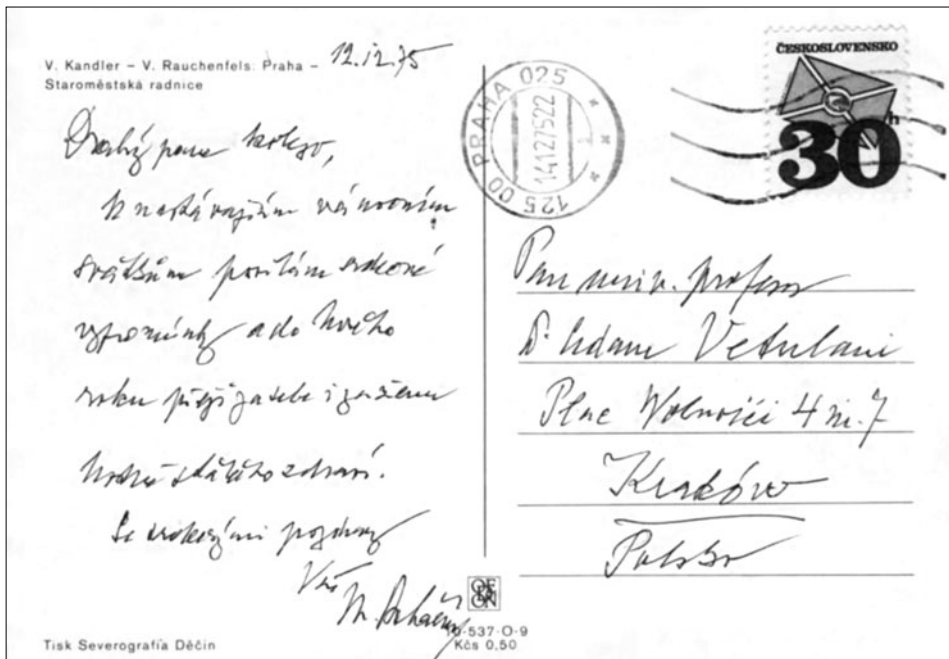 V. Kandler – V. Rauchenfels: Praha –
Staroměstská radnice
12.12.75
Drahý pane kolego,
k nastávajícím vánočním
svátkům posílám srdečné
vzpomínky a do Nového
roku přeji za sebe i za ženu
hodně stálého zdraví.
Se srdečnými pozdravy
Váš
Tisk Severografia Děčín
ODEON
10-537-O-9
Kčs 0,50
125 00 PRAHA 025
14.12.75 22
ČESKOSLOVENSKO
30h
Pan univ. profesor
Dr. Adam Vetulani
Plac Wolności 4 m. 7
Kraków
Polsko